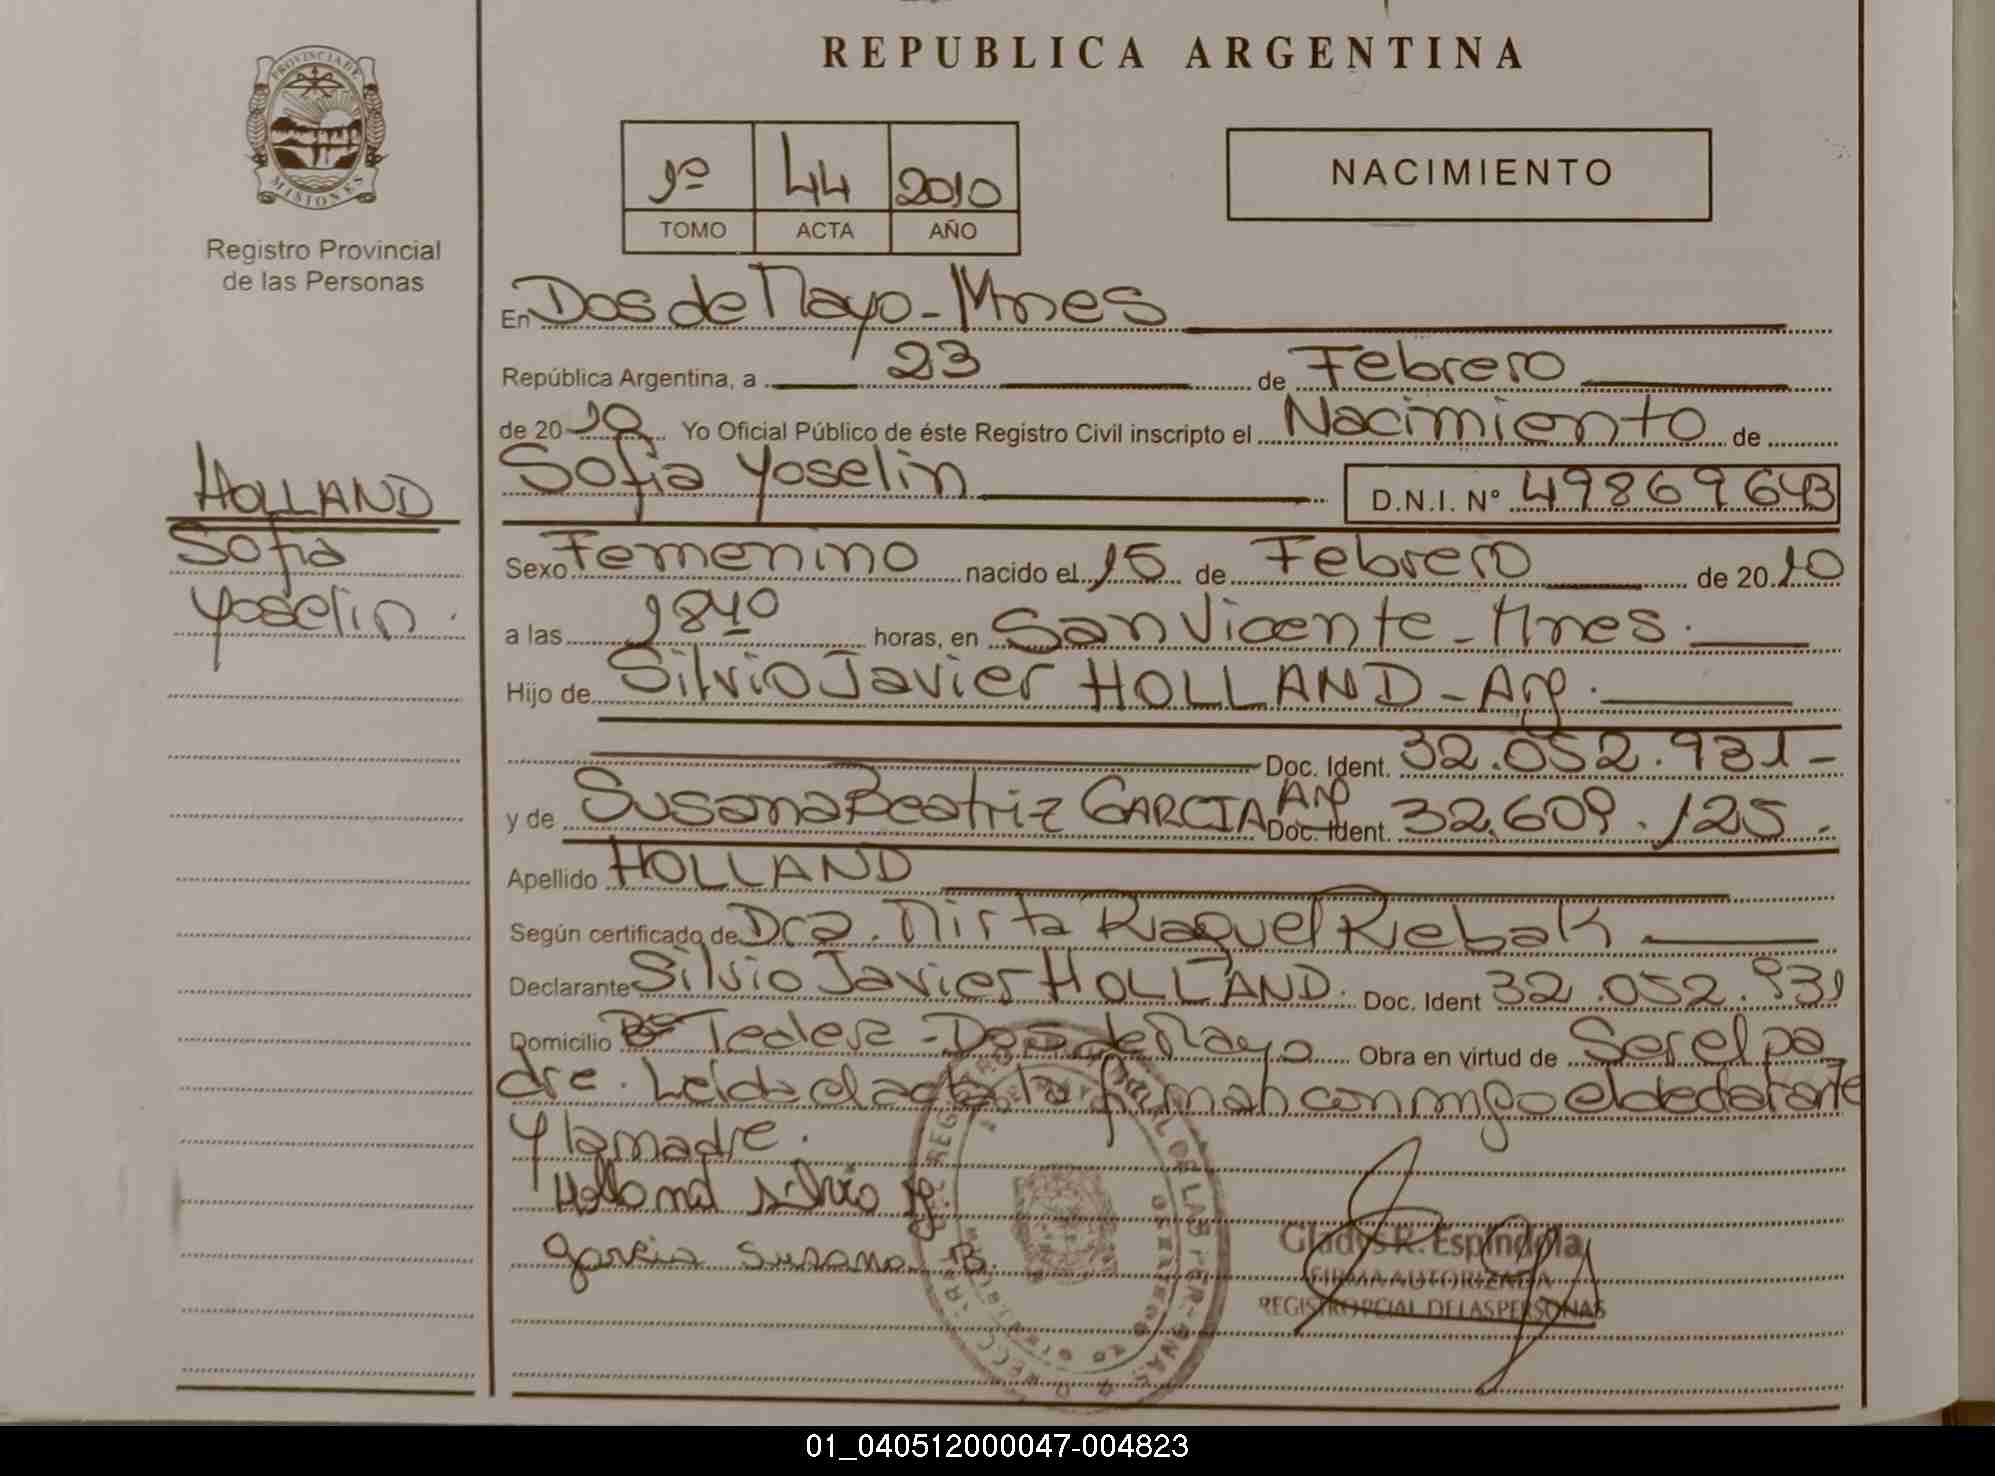 PROVINCIA DE
MISIONES
Registro Provincial
de las Personas
HOLLAND
Sofia
Yoselin.
REPUBLICA ARGENTINA
1º 44 2010
TOMO ACTA AÑO
NACIMIENTO
En Dos de Mayo - Mnes
República Argentina, a 23 de Febrero
de 20 10 Yo Oficial Público de éste Registro Civil inscripto el Nacimiento de
Sofia Yoselin D.N.I. Nº 49869643
Sexo Femenino nacido el 15 de Febrero de 20 10
a las 1840 horas, en San Vicente - Mnes.
Hijo de Silvio Javier HOLLAND - Arg.
Doc. Ident. 32.052.931 -
y de Susana Beatriz GARCIA Arg Doc. Ident. 32.609.125.
Apellido HOLLAND
Según certificado de Dra. Mirta Raquel Riebak.
Declarante Silvio Javier HOLLAND. Doc. Ident 32.052.931
Domicilio Bº Tedesz - Dos de Mayo Obra en virtud de Ser el pa
dre. Leida el acta la firman conmigo el declarante
y la madre.
Holland Silvio J
Garcia Susana B.
Gladys R. Espindola
FIRMA AUTORIZADA
REGISTRO PCIAL DE LAS PERSONAS
01_040512000047-004823